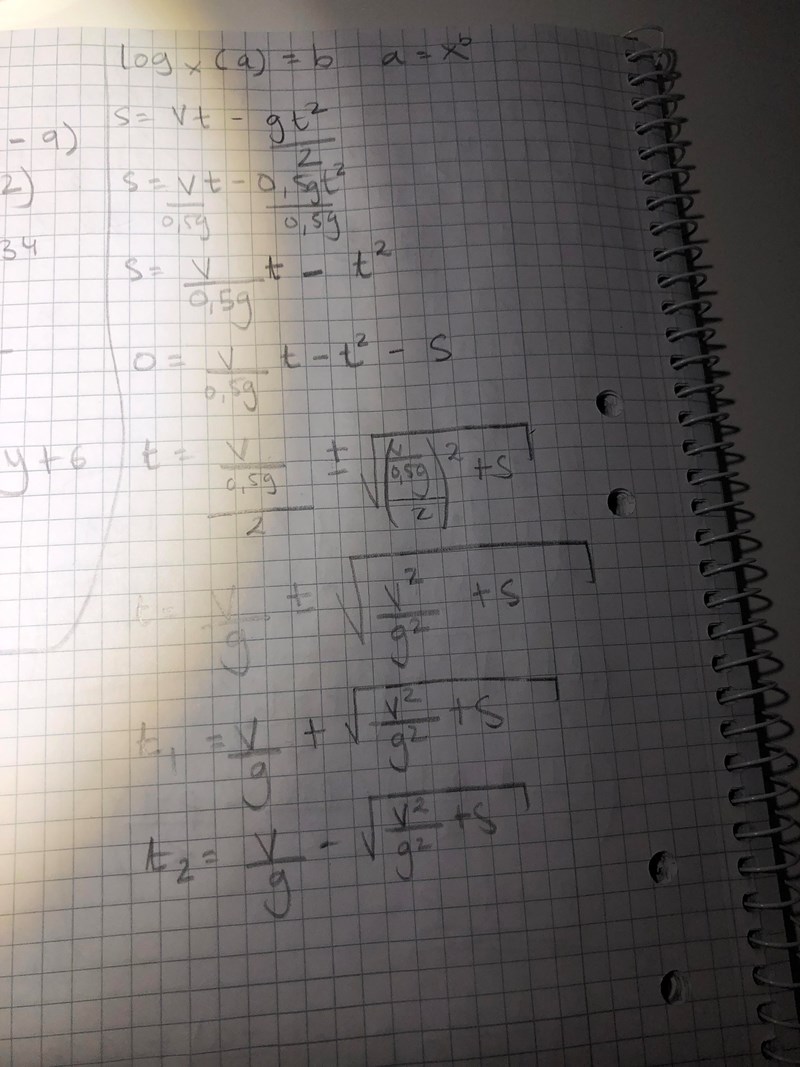 log_x (a) = b   a = x^b
- 9)
s = vt - gt²/2
2)
s = v/0,5g t - 0,5gt²/0,5g
34
s = v/0,5g t - t²
0 = v/0,5g t - t² - s
y + 6
t = (v/0,5g)/2 ± √(((v/0,5g)/2)² + s)
t = v/g ± √(v²/g² + s)
t₁ = v/g + √(v²/g² + s)
t₂ = v/g - √(v²/g² + s)